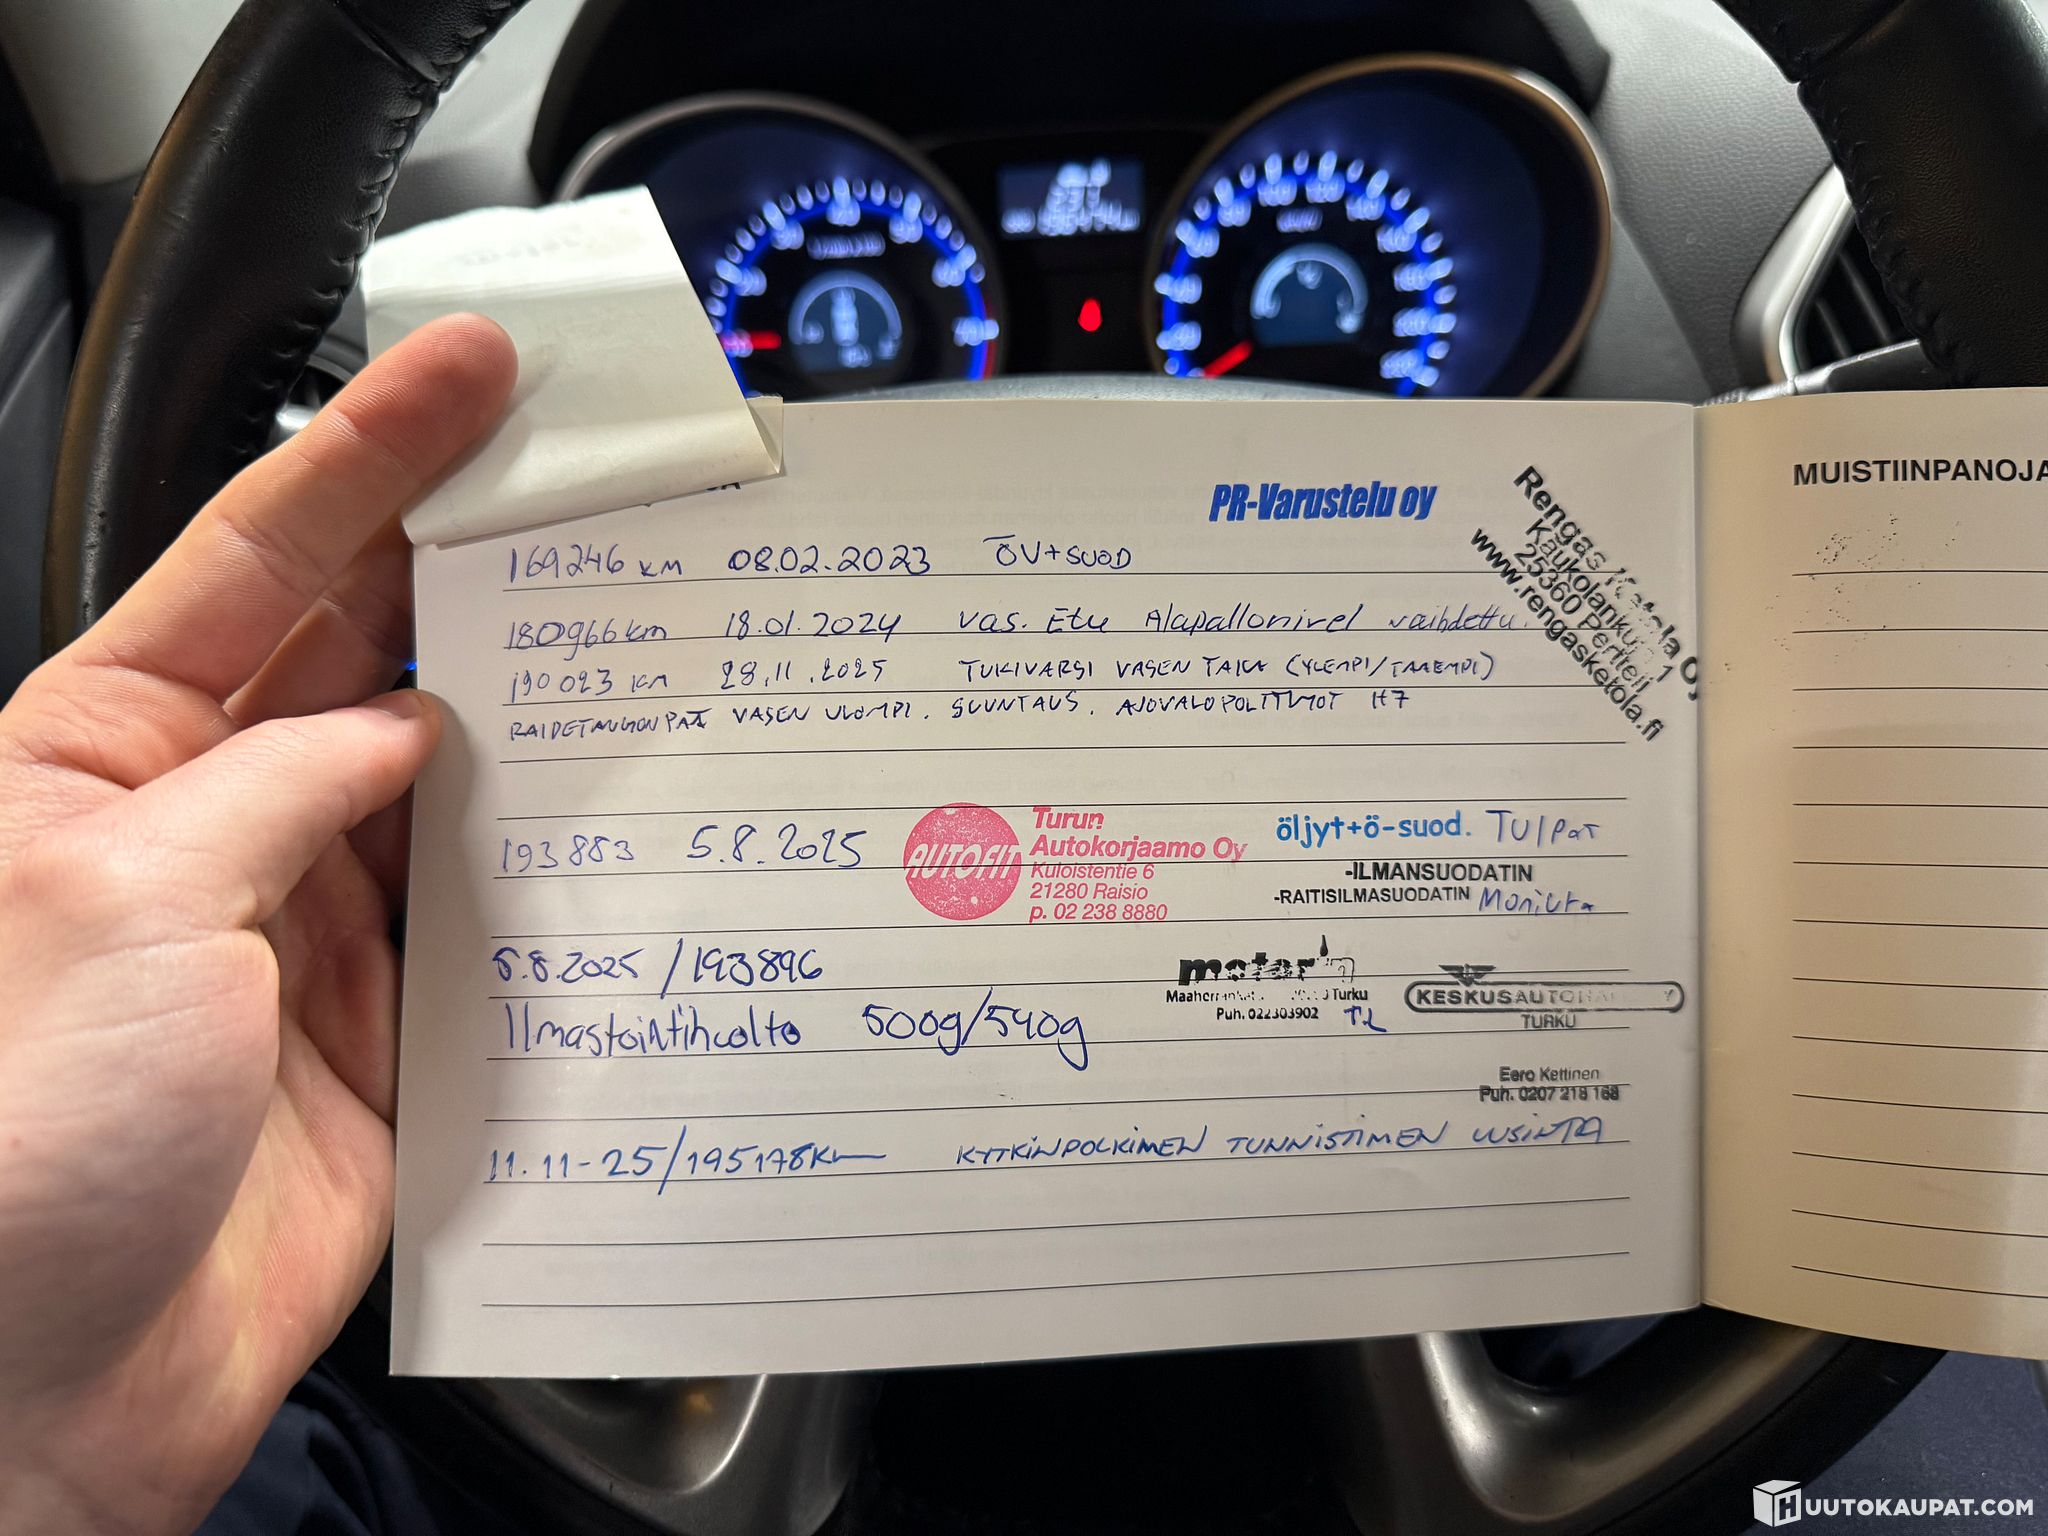 MUISTIINPANOJA
PR-Varustelu oy
169246 KM 08.02.2023 ÖV+SUOD
180966 km 18.01.2024 Vas. Etu Alapallonivel vaihdettu.
190023 KM 28.11.2025 TUKIVARSI VASEN TAKA (YLEMPI/TAAEMPI)
RAIDETANGONPÄÄ VASEN ULOMPI. SUUNTAUS. AJOVALOPOLTTIMOT H7
Rengas Ketola Oy
Kaukolankuja 1
25360 Pertteli
www.rengasketola.fi
193883 5.8.2025
AUTOFIT
Turun
Autokorjaamo Oy
Kuloistentie 6
21280 Raisio
p. 02 238 8880
öljyt+ö-suod. Tulpat
-ILMANSUODATIN
-RAITISILMASUODATIN Moniura
5.8.2025 / 193896
Ilmastointihuolto 500g/540g
motor
Turku
Puh. 022303902
KESKUSAUTOHALLI OY
TURKU
Eero Kettinen
Puh. 0207 218 168
11.11-25/195178km KYTKINPOLKIMEN TUNNISTIMEN UUSINTA
HUUTOKAUPAT.COM